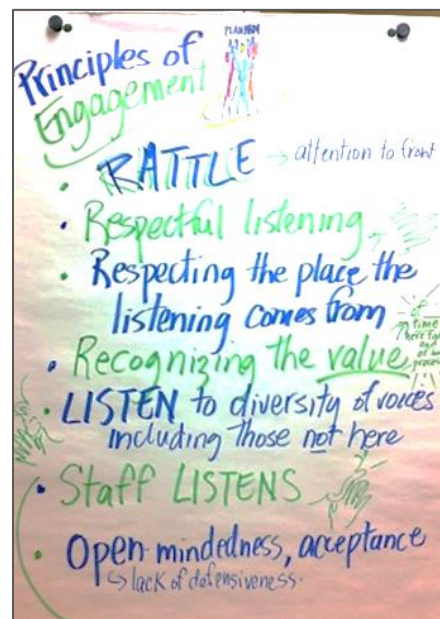 Principles of
Engagement
PLAN H
• RATTLE → attention to front
• Respectful listening
• Respecting the place the
listening comes from
• Recognizing the value
of
time
here
process
• LISTEN to diversity of voices
including those not here
• Staff LISTENS
• Open-mindedness, acceptance
↳ lack of defensiveness.